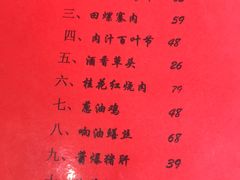 三、田螺塞肉 59
四、肉汁百叶节 48
五、酒香草头 26
六、桂花红烧肉 79
七、葱油鸡 48
八、响油鳝丝 68
九、酱爆猪肝 39